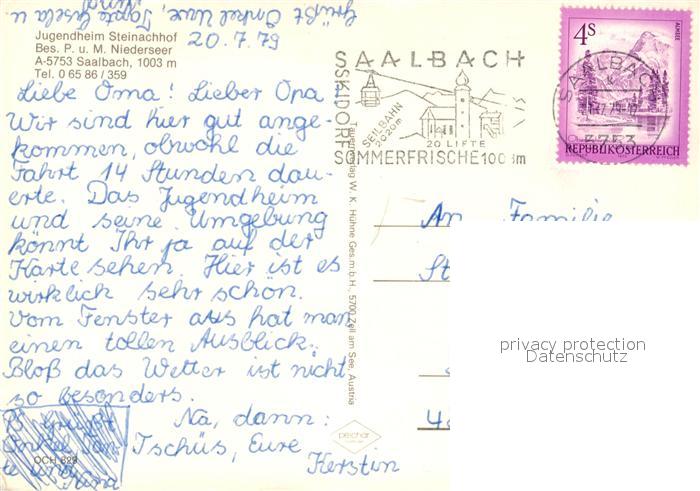 Grüßt Onkel Uwe, Tante Gisela u
Nina
Jugendheim Steinachhof
Bes. P. u. M. Niederseer
A-5753 Saalbach, 1003 m
Tel. 0 65 86 / 359
20.7.79
Liebe Oma! Lieber Opa!
Wir sind hier gut ange-
kommen, obwohl die
Fahrt 14 Stunden dau-
erte. Das Jugendheim
und seine Umgebung
könnt Ihr ja auf der
Karte sehen. Hier ist es
wirklich sehr schön.
Vom Fenster aus hat man
einen tollen Ausblick.
Bloß das Wetter ist nicht
so besonders.
Na, dann:
Tschüs, Eure
Kerstin
PS Grüßt
Onkel Tan-
te und
Nina
OCH 829
SAALBACH
SKIDORF
SEILBAHN
2020m
20 LIFTE
SOMMERFRISCHE 1003m
4S
ALMSEE
SAALBACH
5753
REPUBLIK ÖSTERREICH
Verlag W. K. Hühne Ges.m.b.H., 5700 Zell am See, Austria
An Familie
St
privacy protection
Datenschutz